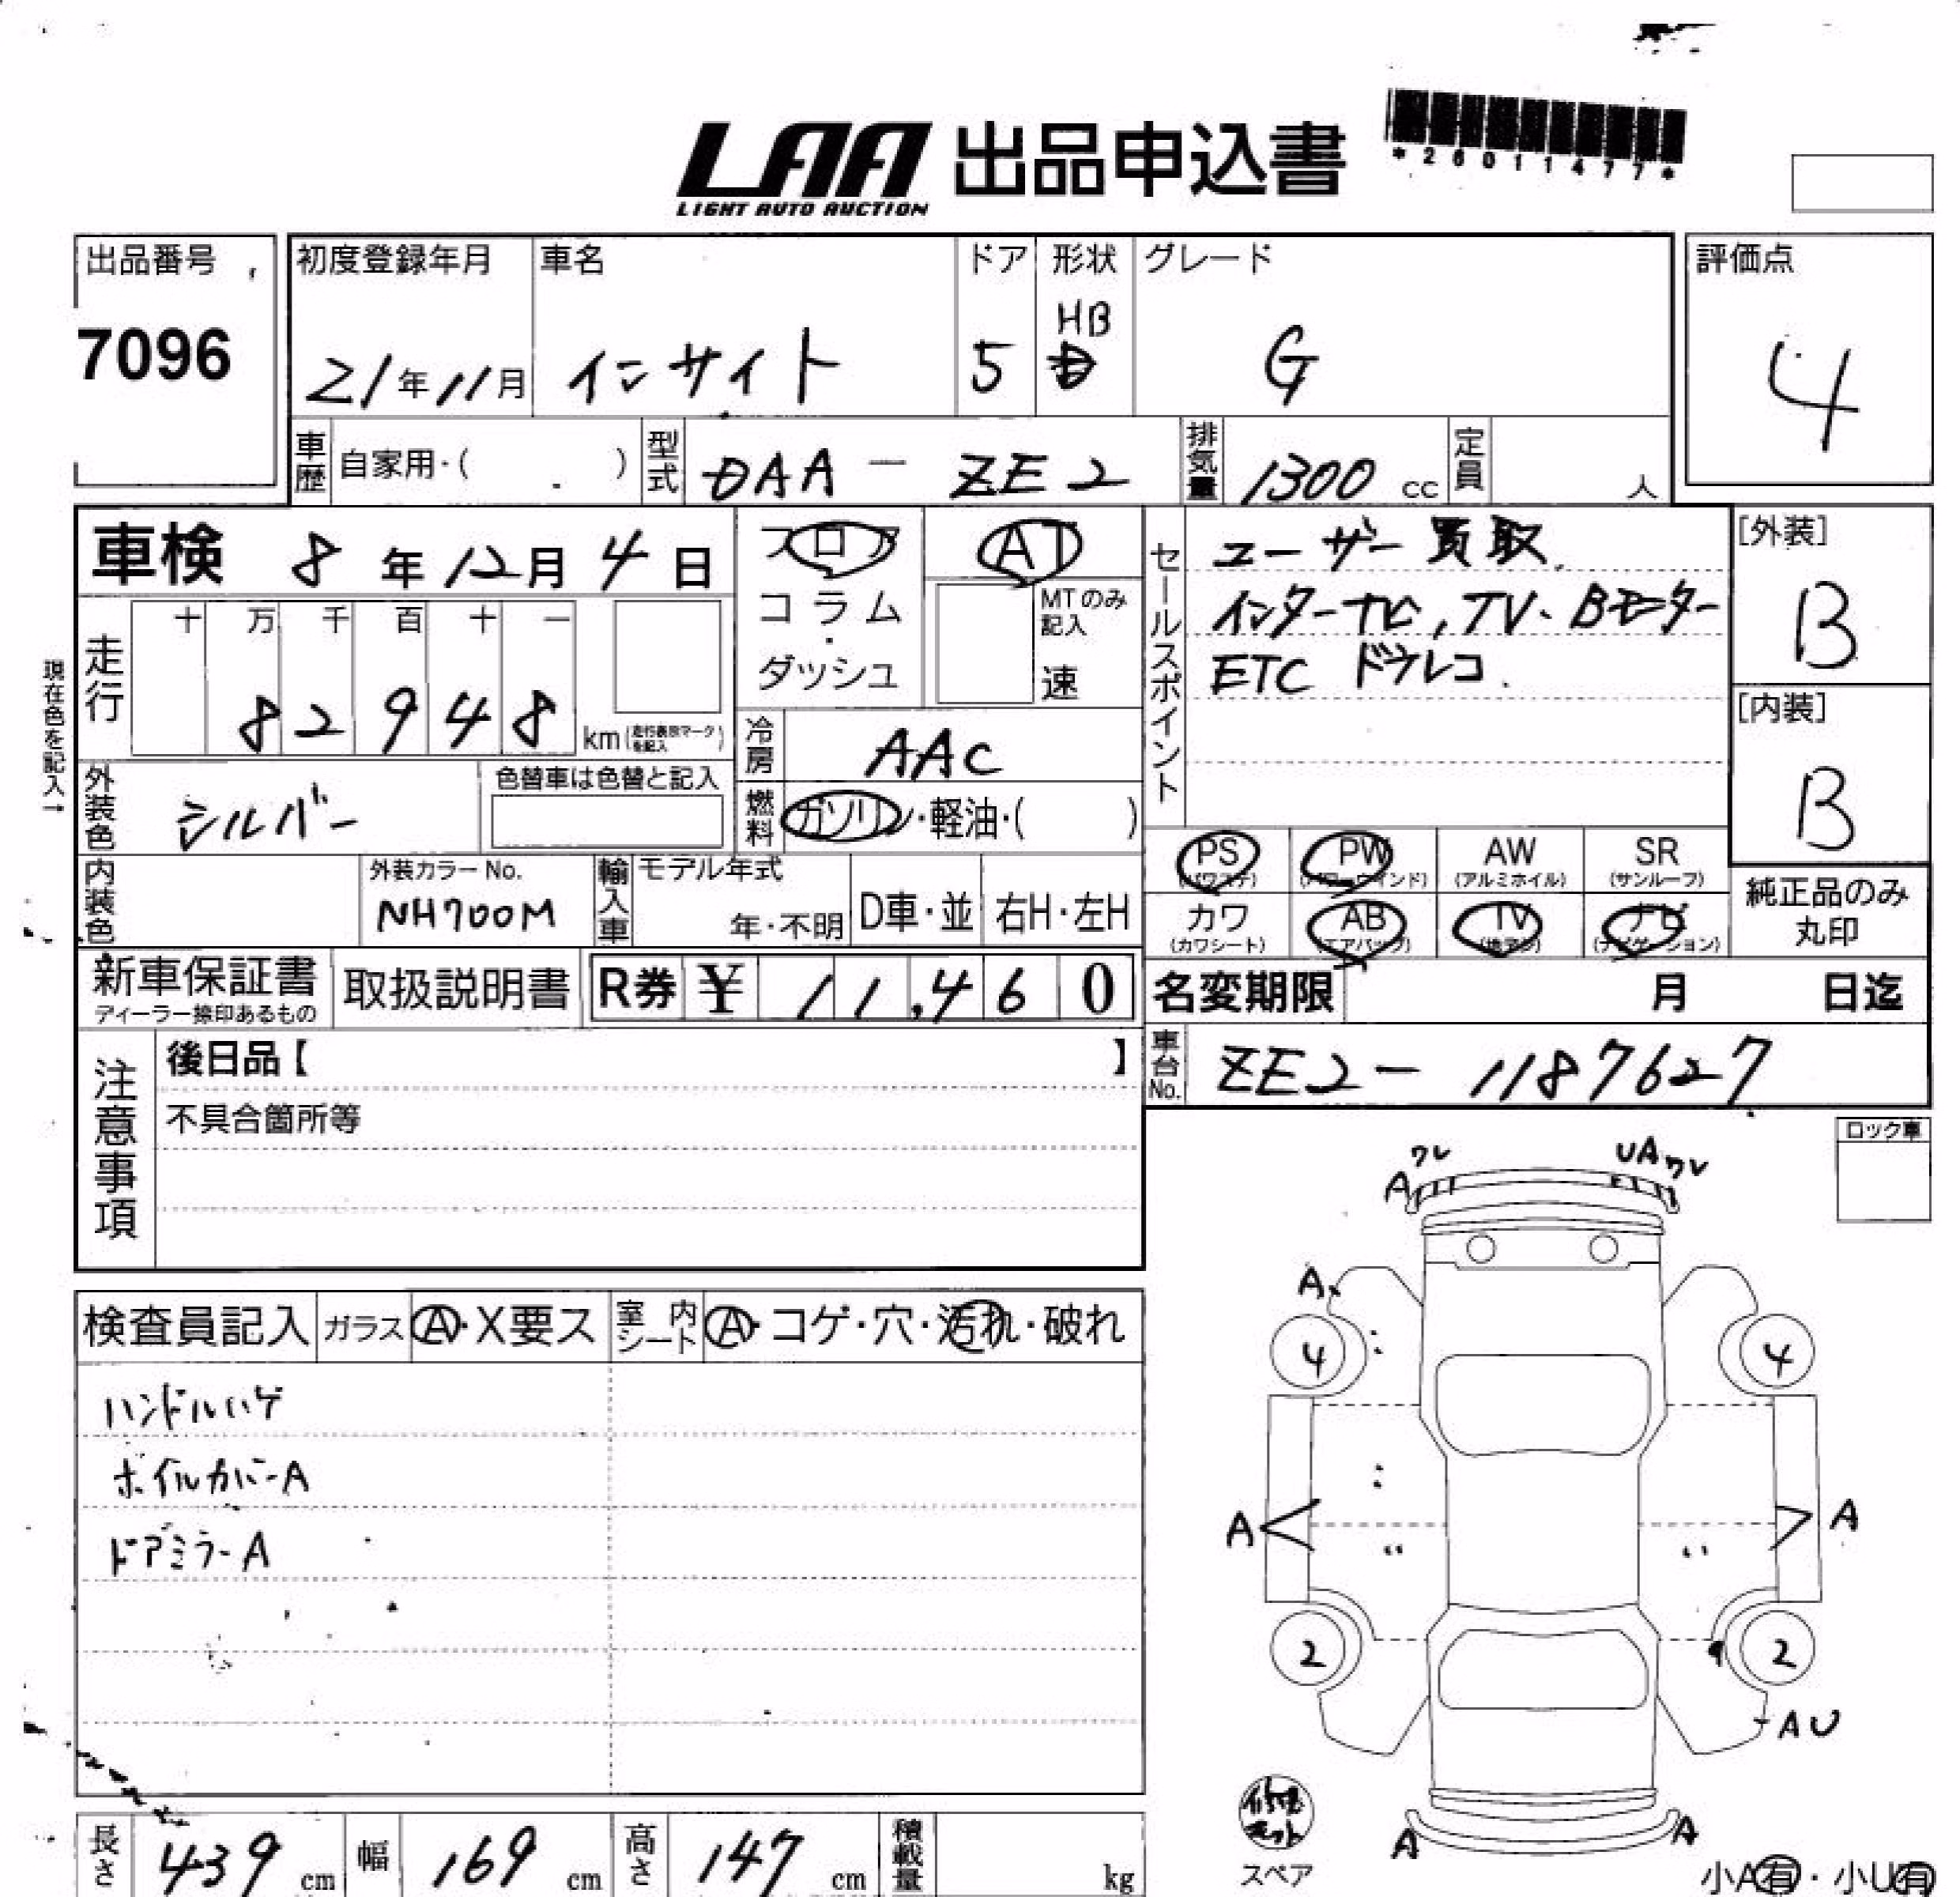 LAA 出品申込書
LIGHT AUTO AUCTION
*26011477*
出品番号
7096
初度登録年月
21年11月
車名
インサイト
ドア
5
形状
HB
グレード
G
評価点
4
車歴 自家用・( )
型式 DAA-ZE2
排気量 1300 cc
定員 人
車検 8年12月4日
フロア
コラム
・
ダッシュ
AT
MTのみ
記入
速
セールスポイント
ユーザー買取
インターナビ,TV、Bモニター
ETC ドラレコ.
[外装]
B
[内装]
B
現在色を記入→
走行
十 万 千 百 十 一
8 2 9 4 8
km(走行表示マークを記入)
冷房 AAC
燃料 ガソリン・軽油・( )
外装色 シルバー
色替車は色替と記入
内装色
外装カラーNo.
NH700M
輸入車
モデル年式
年・不明
D車・並
右H・左H
PS
(パワステ)
PW
(パワーウィンド)
AW
(アルミホイル)
SR
(サンルーフ)
カワ
(カワシート)
AB
(エアバッグ)
TV
(地デジ)
ナビ
(ナビゲーション)
純正品のみ
丸印
新車保証書
ディーラー捺印あるもの
取扱説明書
R券 ¥ 11,460
名変期限 月 日迄
車台No. ZE2-1187627
注意事項
後日品【 】
不具合箇所等
ロック車
検査員記入
ガラス A・X要ス
室内シート A・コゲ・穴・汚れ・破れ
ハンドルハゲ
ホイルカバーA
ドアミラーA
A ワレ
UA ワレ
A
4
4
A
A
2
2
AU
A
A
スペア
小A有・小U有
長さ 439 cm
幅 169 cm
高さ 147 cm
積載量 kg